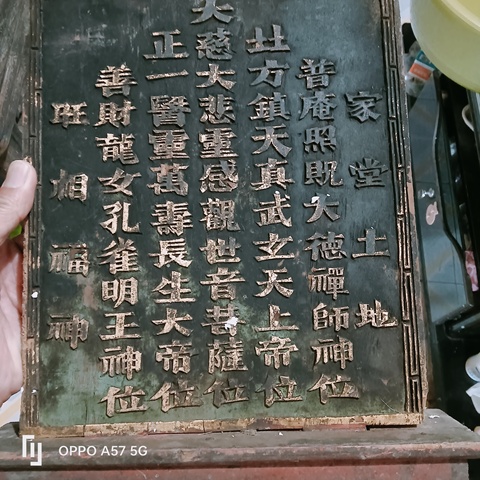 家堂土地
普庵照既大德禪師神位
北方鎮天真武玄天上帝位
大慈大悲靈感觀世音菩薩位
正一醫靈萬壽長生大帝位
善財龍女孔雀明王神位
旺相福神
OPPO A57 5G